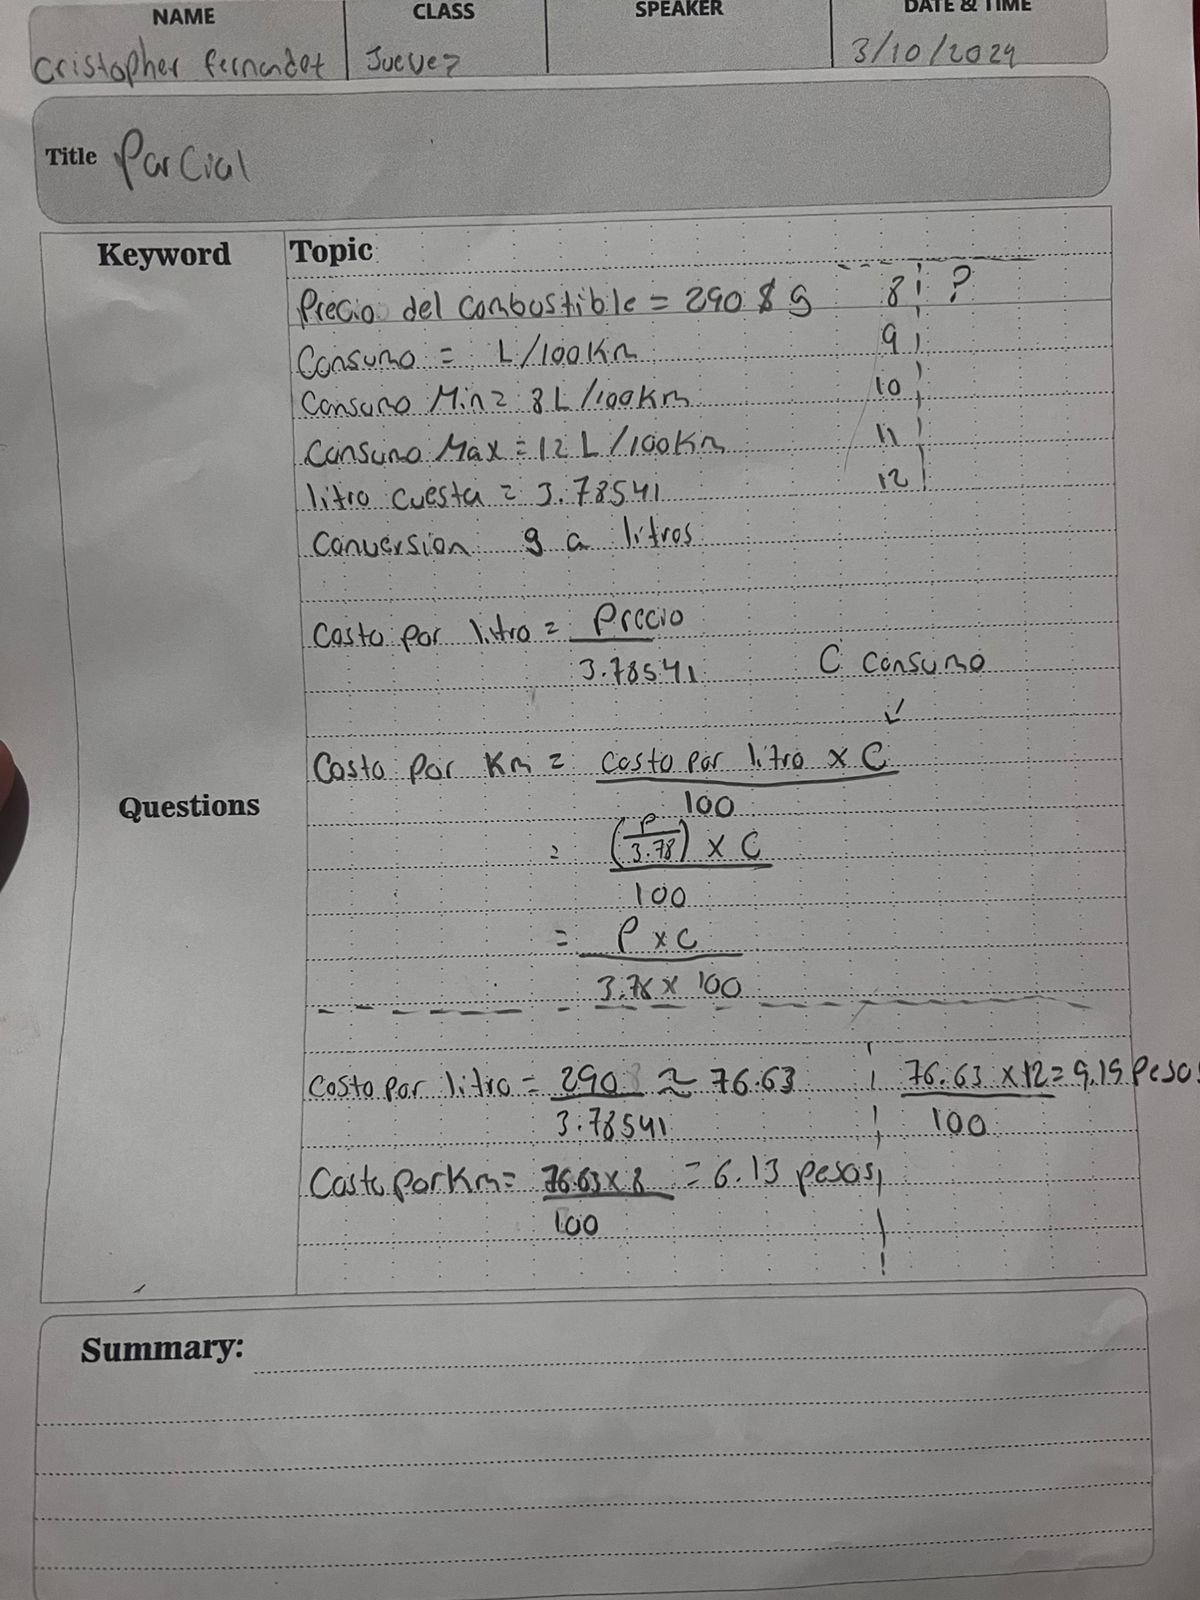 NAME
CLASS
SPEAKER
DATE & TIME
Cristopher fernandet
Juevez
3/10/2024
Title Parcial
Keyword
Topic
Precio del combustible = 290 $ g
8 ?
Consumo = L/100Km
9
Consumo Min = 8 L/100Km
10
Consumo Max = 12 L/100Km
11
litro cuesta = 3.78541
12
Conversion g a litros
Costo por litro = Precio
3.78541
C Consumo
Costo por Km = costo por litro x C
100
Questions
= (P/3.78) x C
100
= P x C
3.78 x 100
Costo por litro = 290 ≈ 76.63
3.78541
76.63 x 12 = 9.19 Pesos
100
Costo por Km = 76.63 x 8 = 6.13 pesos
100
Summary: